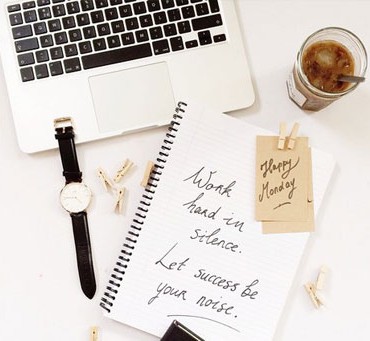 Work
hard in
silence.
Let success be
your noise.
Happy
Monday